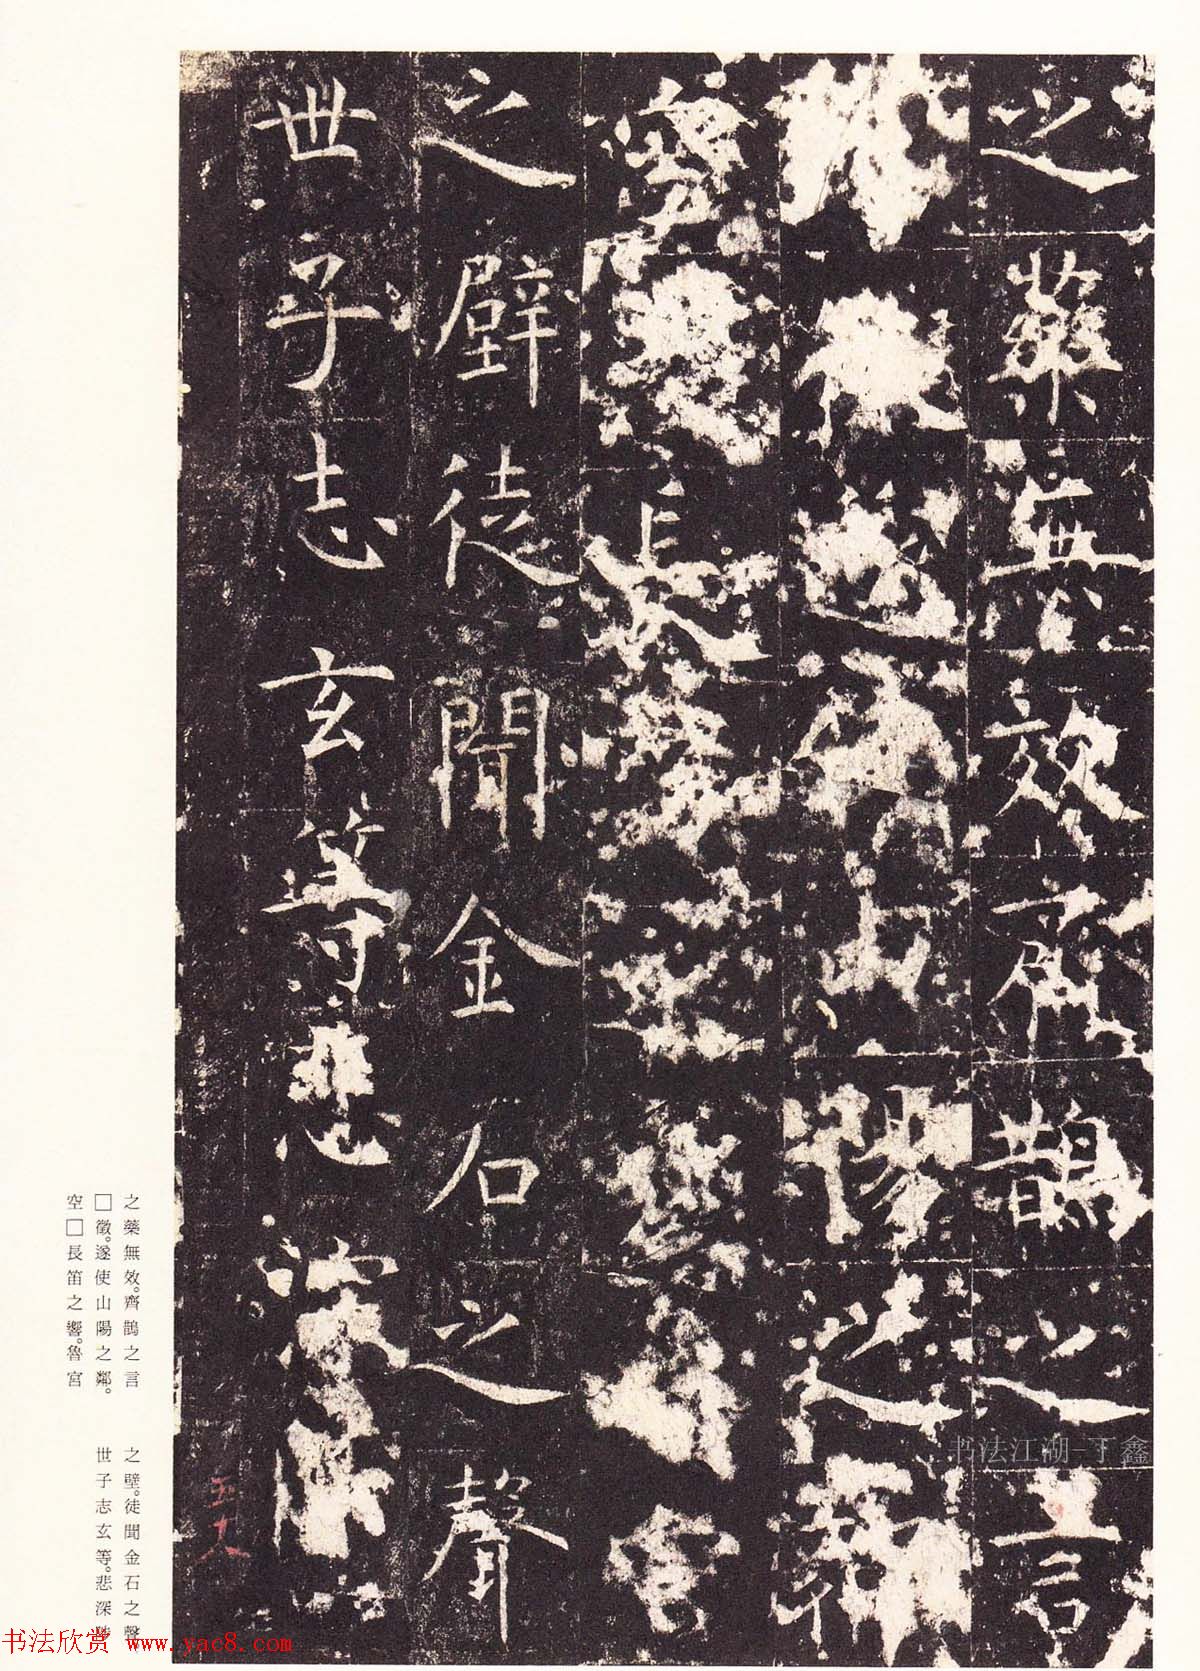 之藥無效齊鵲之言
徵遂使山陽之鄰
空長笛之響魯宮
之壁徒聞金石之聲
世子志玄等悲深
五十
之藥無效。齊鵲之言
□徵。遂使山陽之鄰。
空□長笛之響。魯宮
之壁。徒聞金石之聲
世子志玄等。悲深
书法江湖-丁鑫
书法欣赏 www.yac8.com